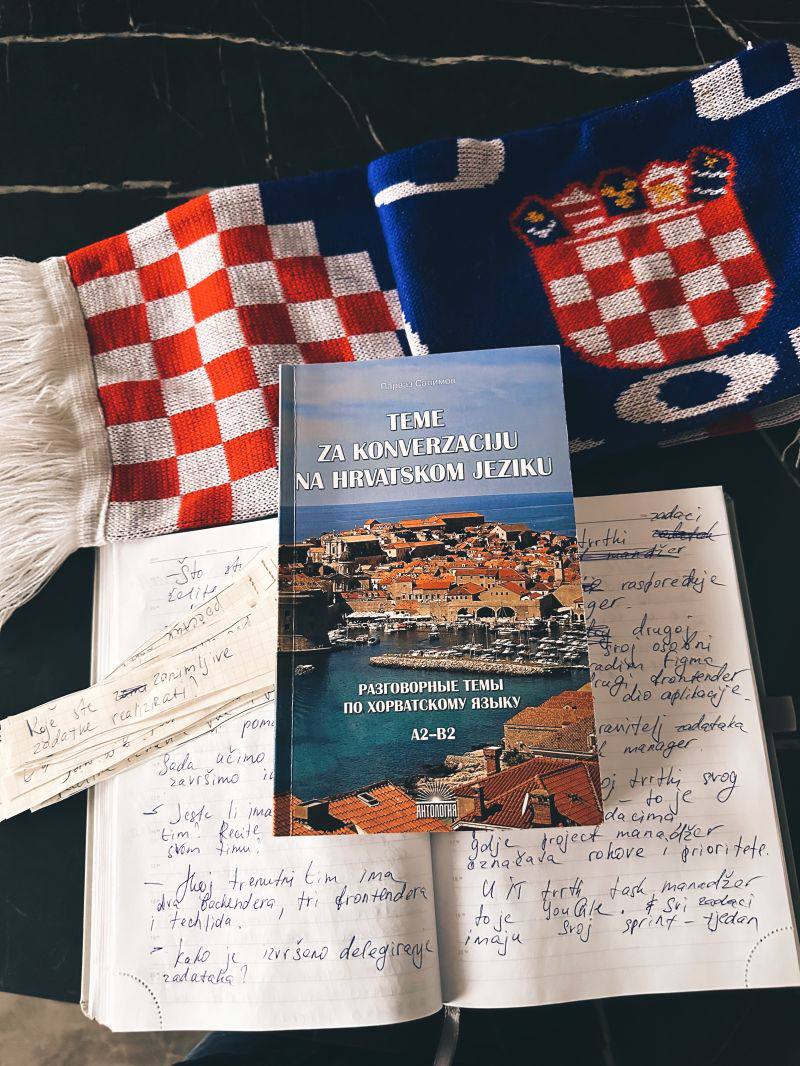 Парваз Салимов
TEME
ZA KONVERZACIJU
NA HRVATSKOM JEZIKU
РАЗГОВОРНЫЕ ТЕМЫ
ПО ХОРВАТСКОМУ ЯЗЫКУ
А2–В2
АНТОЛОГИЯ
Koje ste zanimljive
zadatke realizirati?
Što ste
željeli
Sada učimo
završimo
Jeste li ima
tim? Recite
svom timu?
– Moj trenutni tim ima
dva backendera, tri frontendera
i techlida.
Kako je izvršeno delegiranje
zadataka?
zadaci
tvrtki zadatak
manadžer
raspoređuje
ger.
drugoj
svoj osobni
radim figma
drugi frontender
dio aplikacije.
ravitelj zadataka
l manager.
oj tvrtki svog
– to je
dacima
gdje project manadžer
označava rokove i prioritete.
U IT tvrtk task manadžer
to je YouGile. Svi zadaci
imaju svoj sprint – tjedan